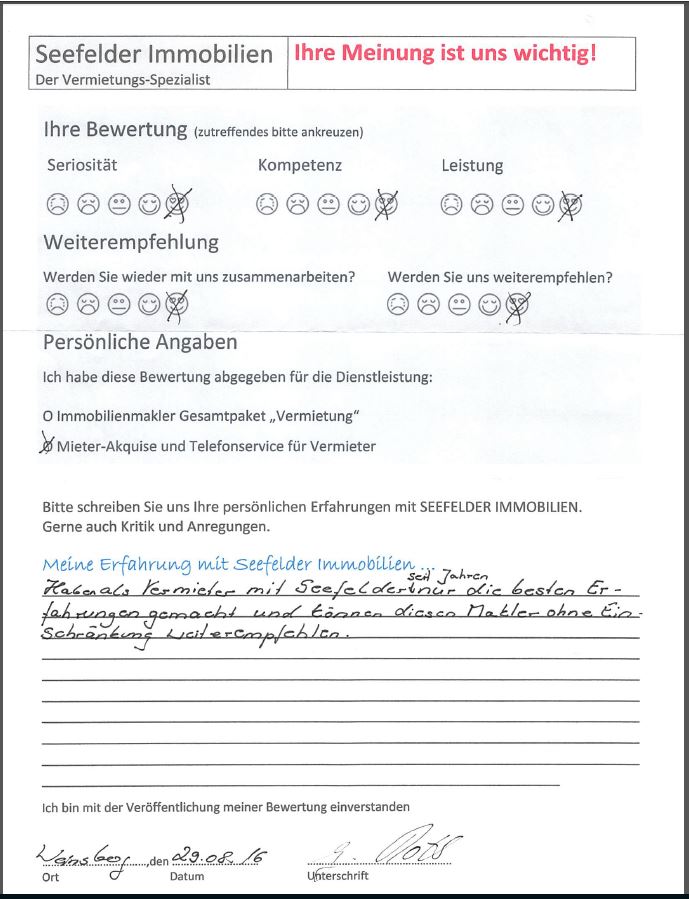 Seefelder Immobilien
Der Vermietungs-Spezialist
Ihre Meinung ist uns wichtig!
Ihre Bewertung (zutreffendes bitte ankreuzen)
Seriosität Kompetenz Leistung
Weiterempfehlung
Werden Sie wieder mit uns zusammenarbeiten? Werden Sie uns weiterempfehlen?
Persönliche Angaben
Ich habe diese Bewertung abgegeben für die Dienstleistung:
O Immobilienmakler Gesamtpaket „Vermietung“
O Mieter-Akquise und Telefonservice für Vermieter
Bitte schreiben Sie uns Ihre persönlichen Erfahrungen mit SEEFELDER IMMOBILIEN.
Gerne auch Kritik und Anregungen.
Meine Erfahrung mit Seefelder Immobilien ...
seit Jahren
Haben als Vermieter mit Seefelder nur die besten Er-
fahrungen gemacht und können diesen Makler ohne Ein-
schränkung weiterempfehlen.
Ich bin mit der Veröffentlichung meiner Bewertung einverstanden
,den 29.08.16
Ort Datum Unterschrift